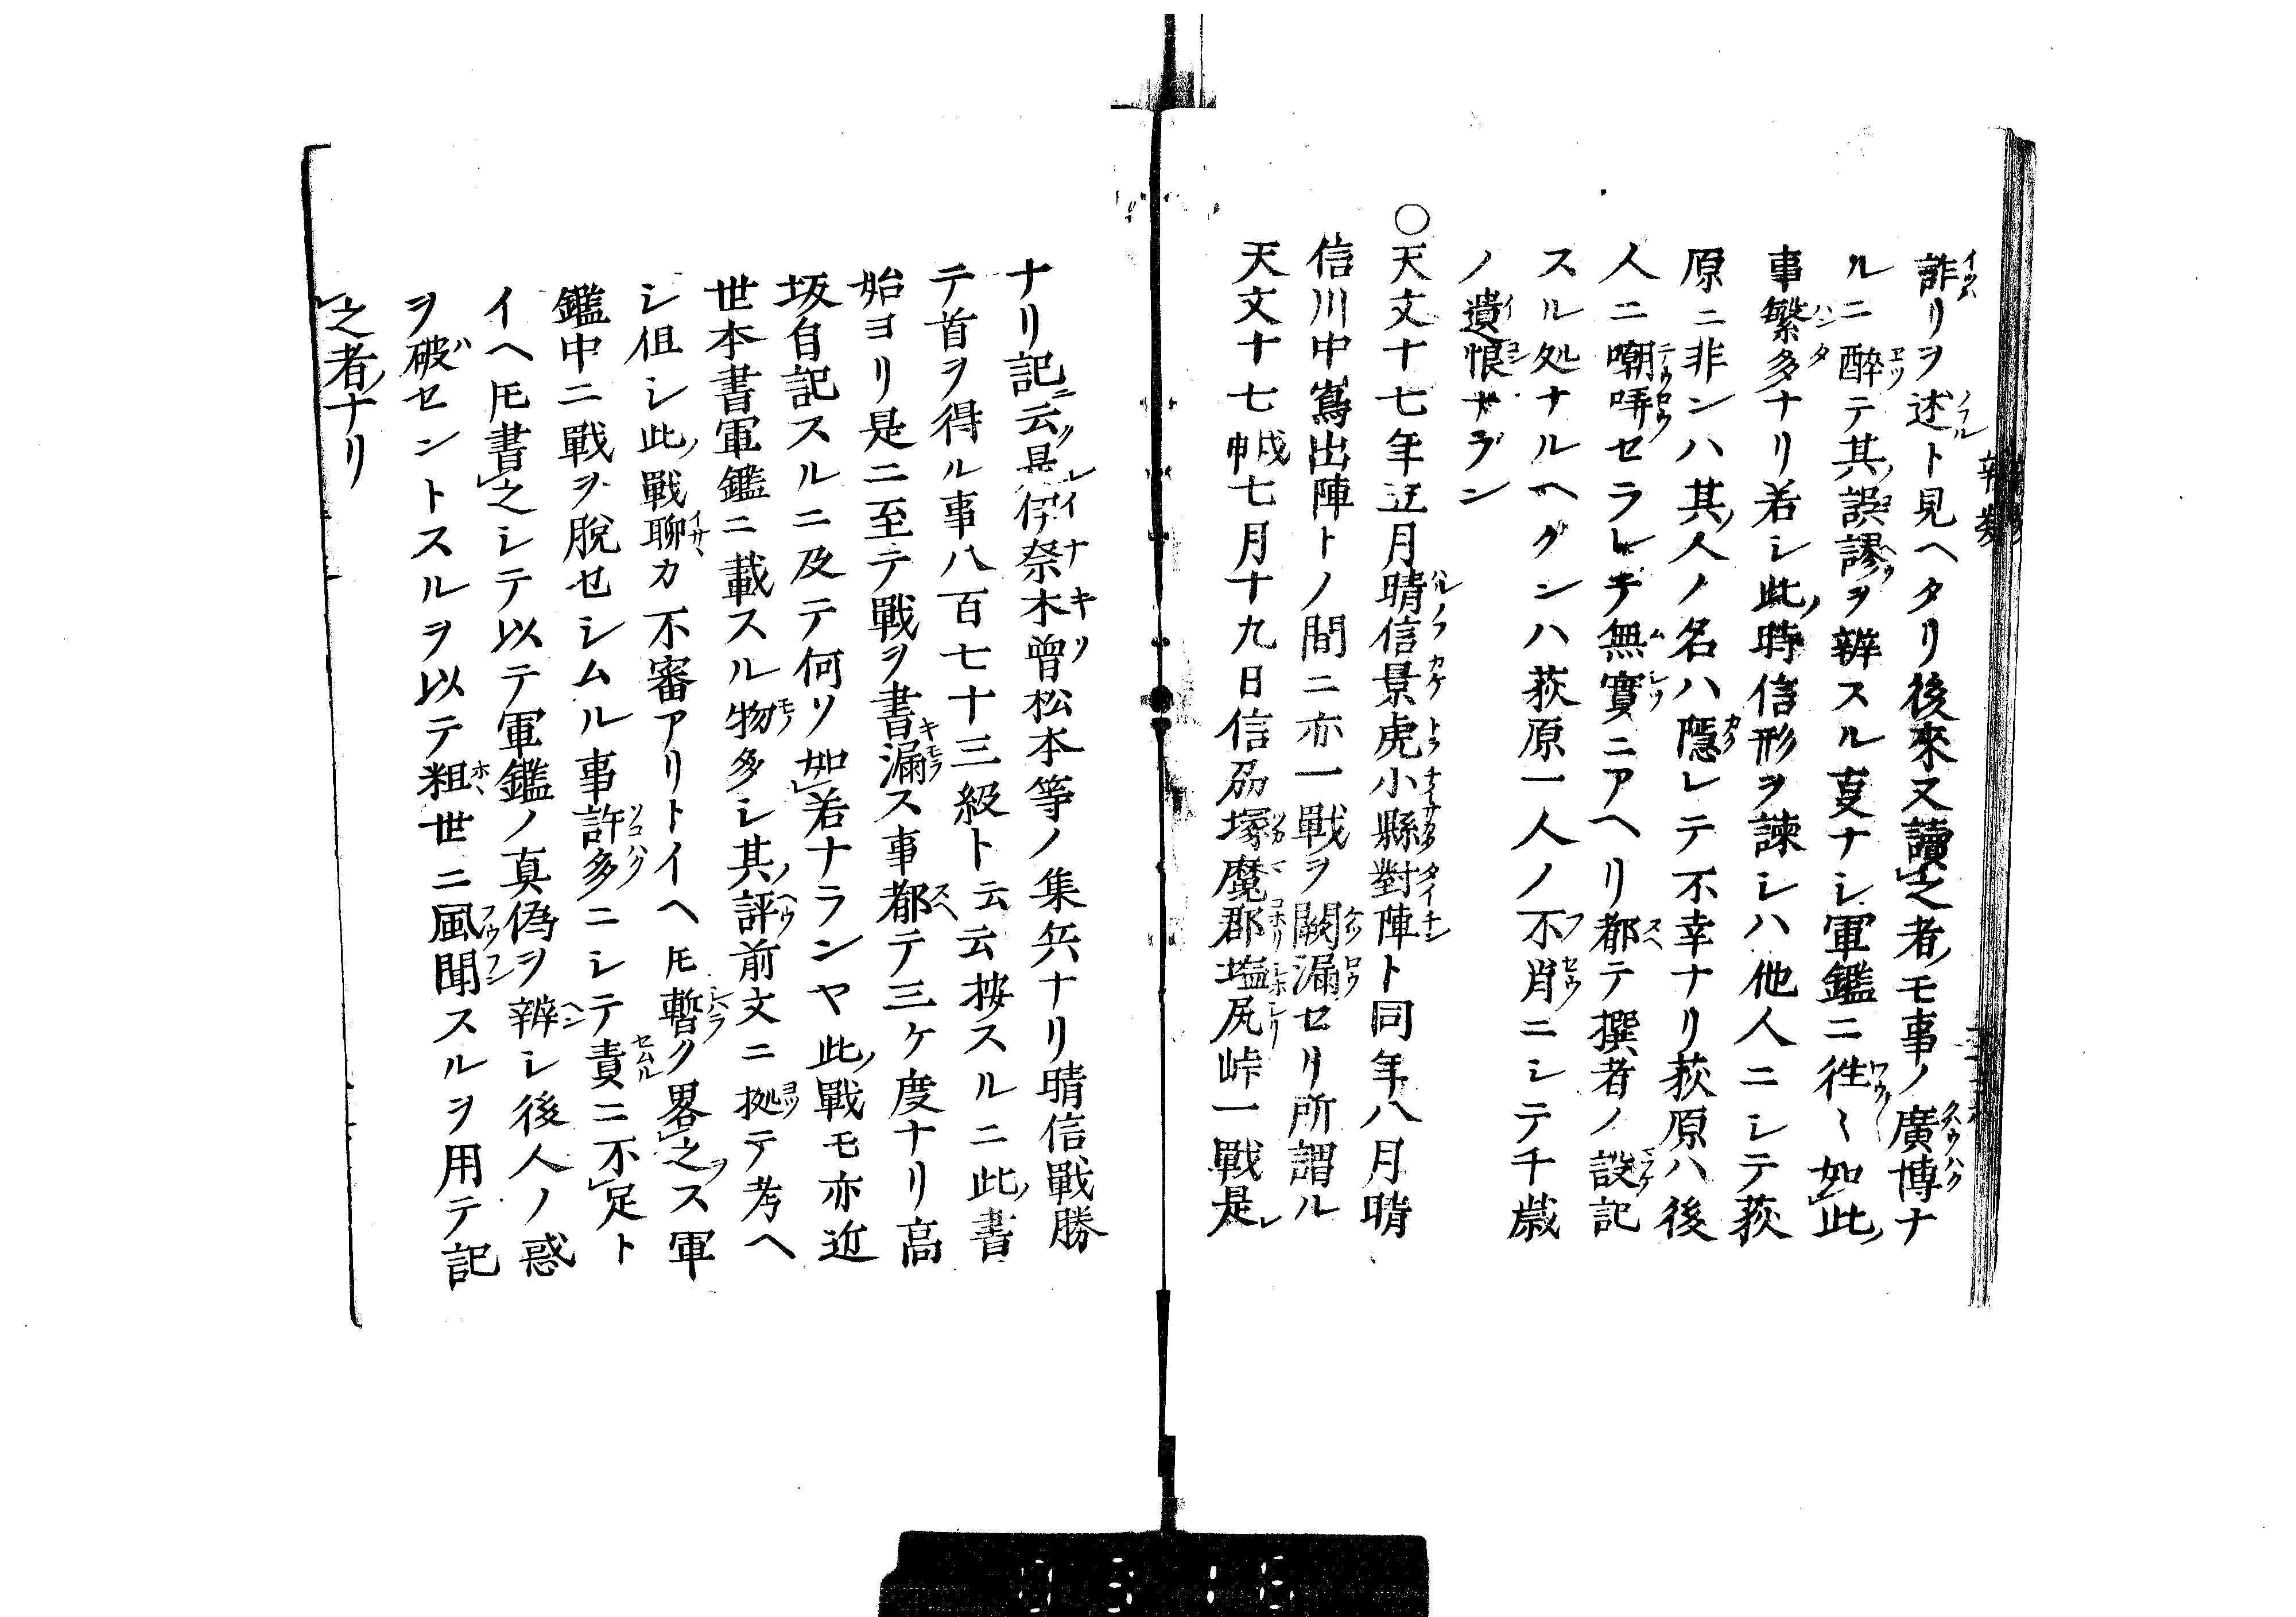 詐リヲ述ト見ヘタリ後來又讀之者モ事ノ廣博ナ
ルニ醉テ其誤謬ヲ辨スル叓ナシ軍鑑ニ往〻如此
事繁多ナリ若シ此時信形ヲ諫シハ他人ニシテ萩
原ニ非ンハ其人ノ名ハ隱レテ不幸ナリ萩原ハ後
人ニ嘲哢セラレ乎無實ニアヘリ都テ撰者ノ設記
スル処ナルヘグンハ萩原一人ノ不肖ニシテ千歳
ノ遺恨ナラン
○天文十七年五月晴信景虎小縣對陣ト同年八月晴
信川中嶌出陣トノ間ニ亦一戰ヲ闕漏セリ所謂ル
天文十七戊申七月十九日信刕塚魔郡塩尻峠一戰是
ナリ記云是伊奈木曽松本等ノ集兵ナリ晴信戰勝
テ首ヲ得ル事八百七十三級ト云云按スルニ此書
始ヨリ是ニ至テ戰ヲ書漏ス事都テ三ケ度ナリ高
坂自記スルニ及テ何ソ如若ナランヤ此戰モ亦近
世本書軍鑑ニ載スル物多シ其評前文ニ拠テ考ヘ
シ伹シ此戰聊カ不審アリトイヘ𪜈暫ク畧之ス軍
鑑中ニ戰ヲ脫セシムル事許多ニシテ責ニ不足ト
イヘ𪜈書之シテ以テ軍鑑ノ真偽ヲ辨シ後人ノ惑
ヲ破セントスルヲ以テ粗世ニ風聞スルヲ用テ記
之者ナリ